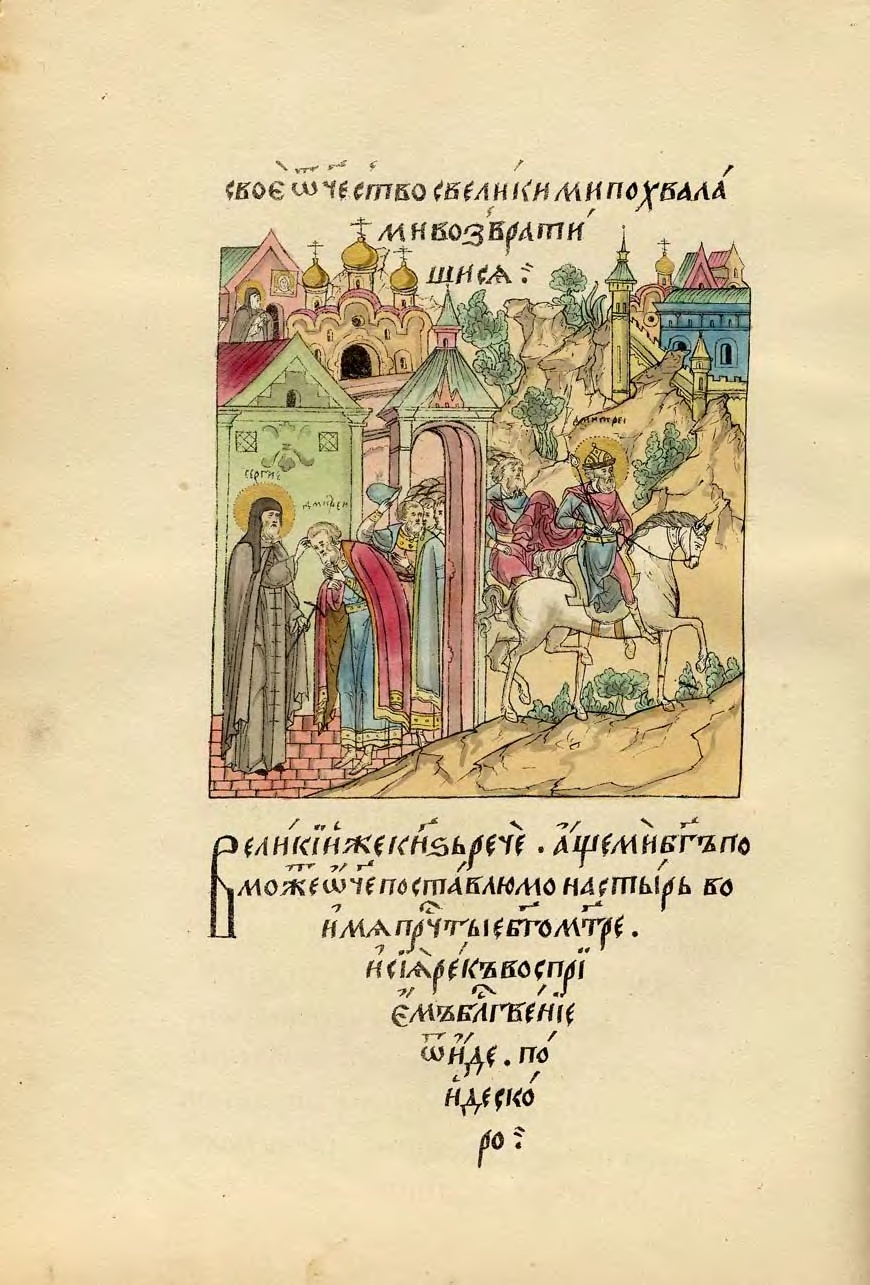 своє ѿчество свеликимипохвала
мивозврати
шися
димитреі
сергие
великїйжекнѕьрече . ащемибг҃ъпо
можеѿч҃епоставлюмонастырь во
имяпрч҃тыебг҃ом҃тре .
исїярекъвоспрї
емъблг҃веніе
ѿиде . по
идеско
ро